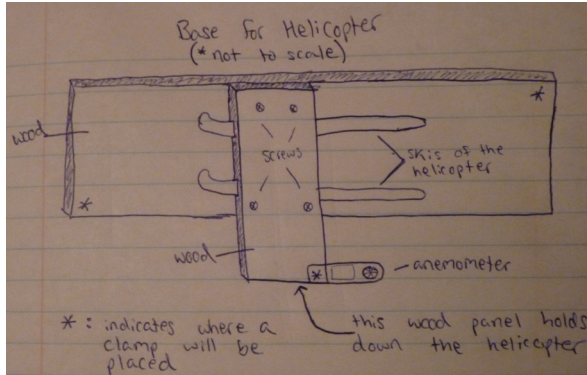 Base for Helicopter
(*not to scale)
*
wood
screws
skis of the
helicopter
*
wood
*
anemometer
* : indicates where a
clamp will be
placed
this wood panel holds
down the helicopter